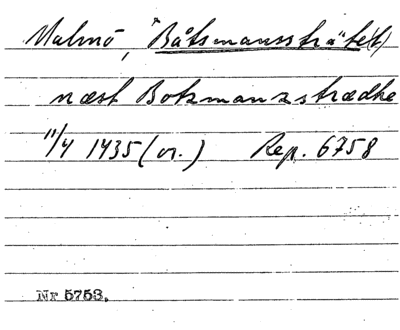 Malmö, "Båtsmanssträ"te(t)
næst Botzmanzstrædhe
11/4 1435 (or.) Rep. 6758
Nr 5753.